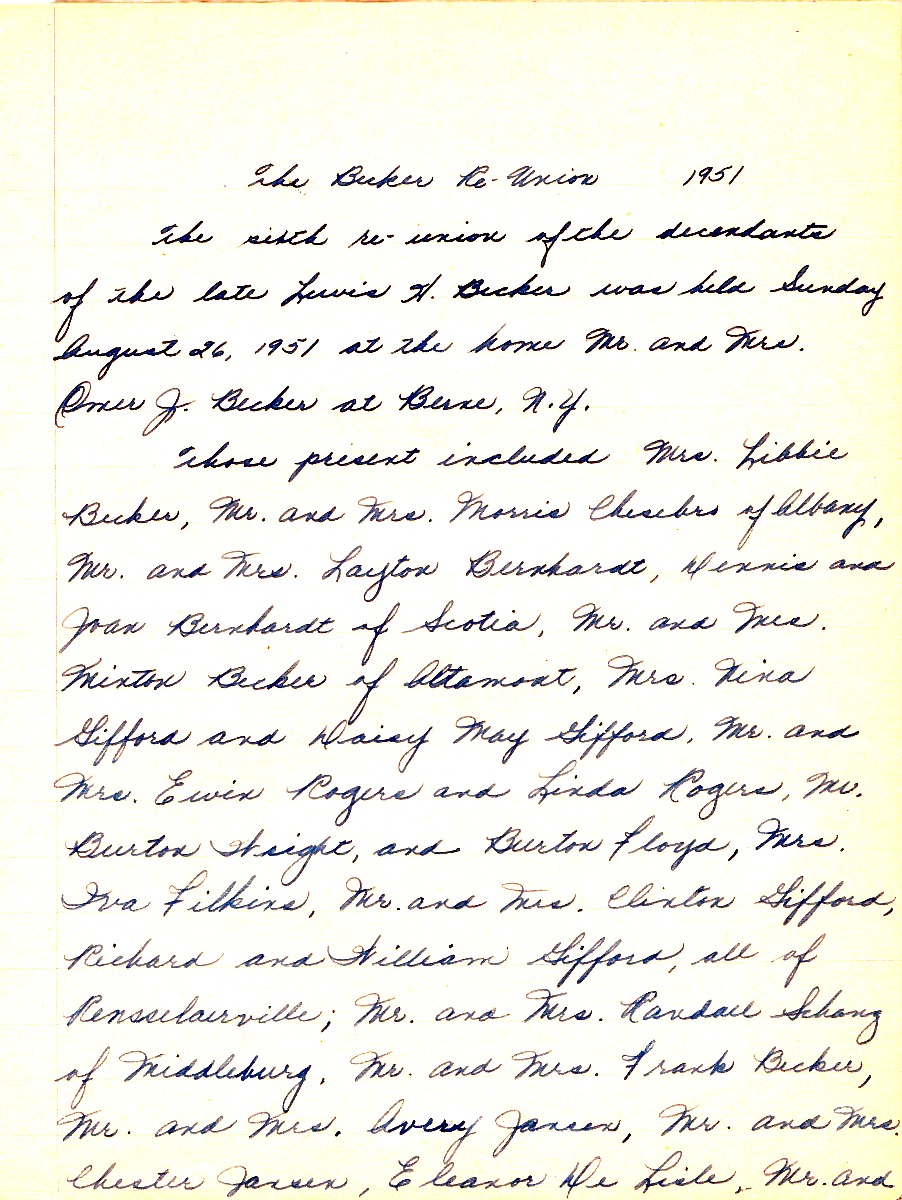 The Becker Re-Union 1951
The sixth re-union of the decendants
of the late Lewis H. Becker was held Sunday
August 26, 1951 at the home Mr. and Mrs.
Omer J. Becker at Berne, N.Y.
Those present included Mrs. Libbie
Becker, Mr. and Mrs. Morris Chesebro of Albany,
Mr. and Mrs. Layton Bernhardt, Dennis and
Joan Bernhardt of Scotia, Mr. and Mrs.
Minton Becker of Altamont, Mrs. Nina
Gifford and Daisy May Gifford, Mr. and
Mrs. Ewin Rogers and Linda Rogers, Mr.
Burton Wright, and Burton Floyd, Mrs.
Iva Filkins, Mr. and Mrs. Clinton Gifford,
Richard and William Gifford, all of
Rensselaerville; Mr. and Mrs. Randall Schanz
of Middleburg, Mr. and Mrs. Frank Becker,
Mr. and Mrs. Avery Jansen, Mr. and Mrs.
Chester Jansen, Eleanor De Lisle, Mr. and